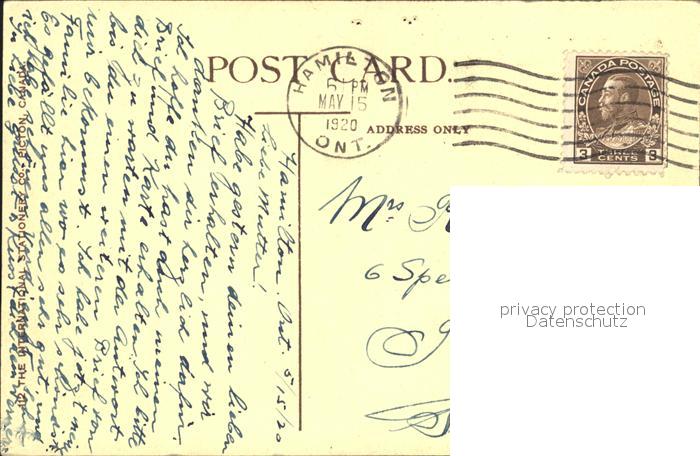 POST CARD.
HAMILTON
6 PM
MAY 15
1920
ONT.
ADDRESS ONLY
CANADA POSTAGE
3 THREE 3
CENTS
Hamilton, Ont. 5/15/20
Liebe Mutter!
Habe gestern deinen lieben
Brief erhalten, und wir
danken dir herzlich dafür.
Ich hoffe du hast auch meinen
Brief und Karte erhalten. Ich bitte
dich zu warten mit der Antwort
bis du einen weiteren Brief von
mir bekommst. Ich habe jetzt meine
Familie hier wo es sehr schön ist
Es gefällt uns allen sehr gut und
ich habe
In Liebe Gruss & Kuss
THE INTERNATIONAL STATIONERY CO., PICTON, CANADA.
Mrs
6 Spe
privacy protection
Datenschutz